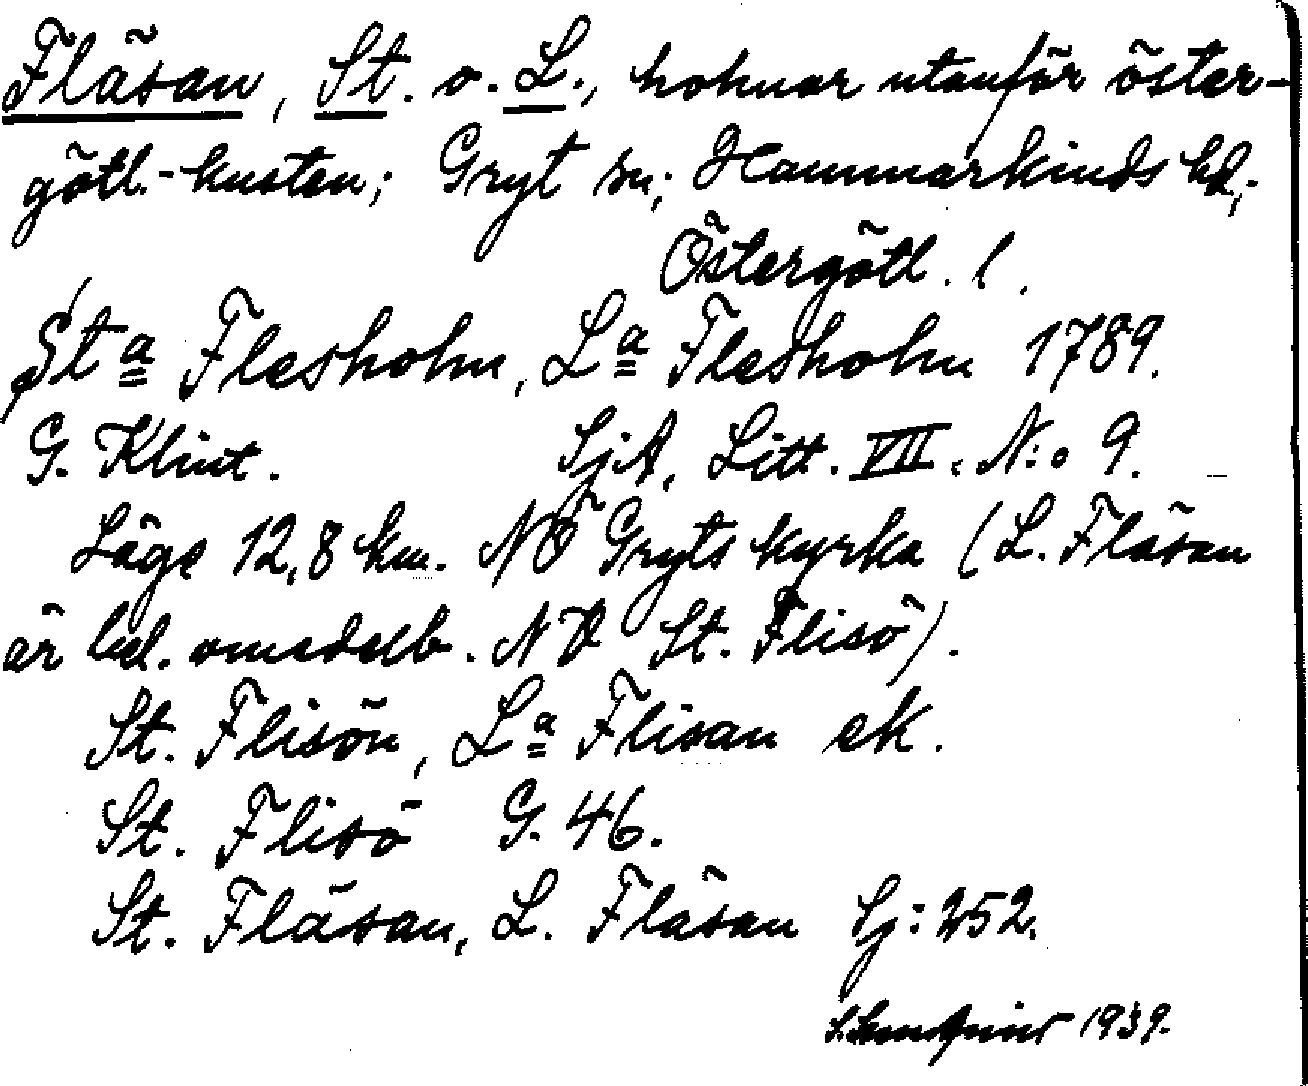 Fläsan, St. o. L., holmar utanför öster-
götl.-kusten; Gryt sn; Hammarkinds hd,;
Östergötl. l.
St a Flesholm, L a Flesholm 1789.
G. Klint. SjA, Litt. VII. N:o 9.
Läge 12,8 km. NÖ Gryts kyrka (L. Fläsan
är bel. omedelb. NV St. Flisö).
St. Flisön, L a Flisan ek.
St. Flisö G. 46.
St. Fläsan, L. Fläsan Sj: 252.
1939.